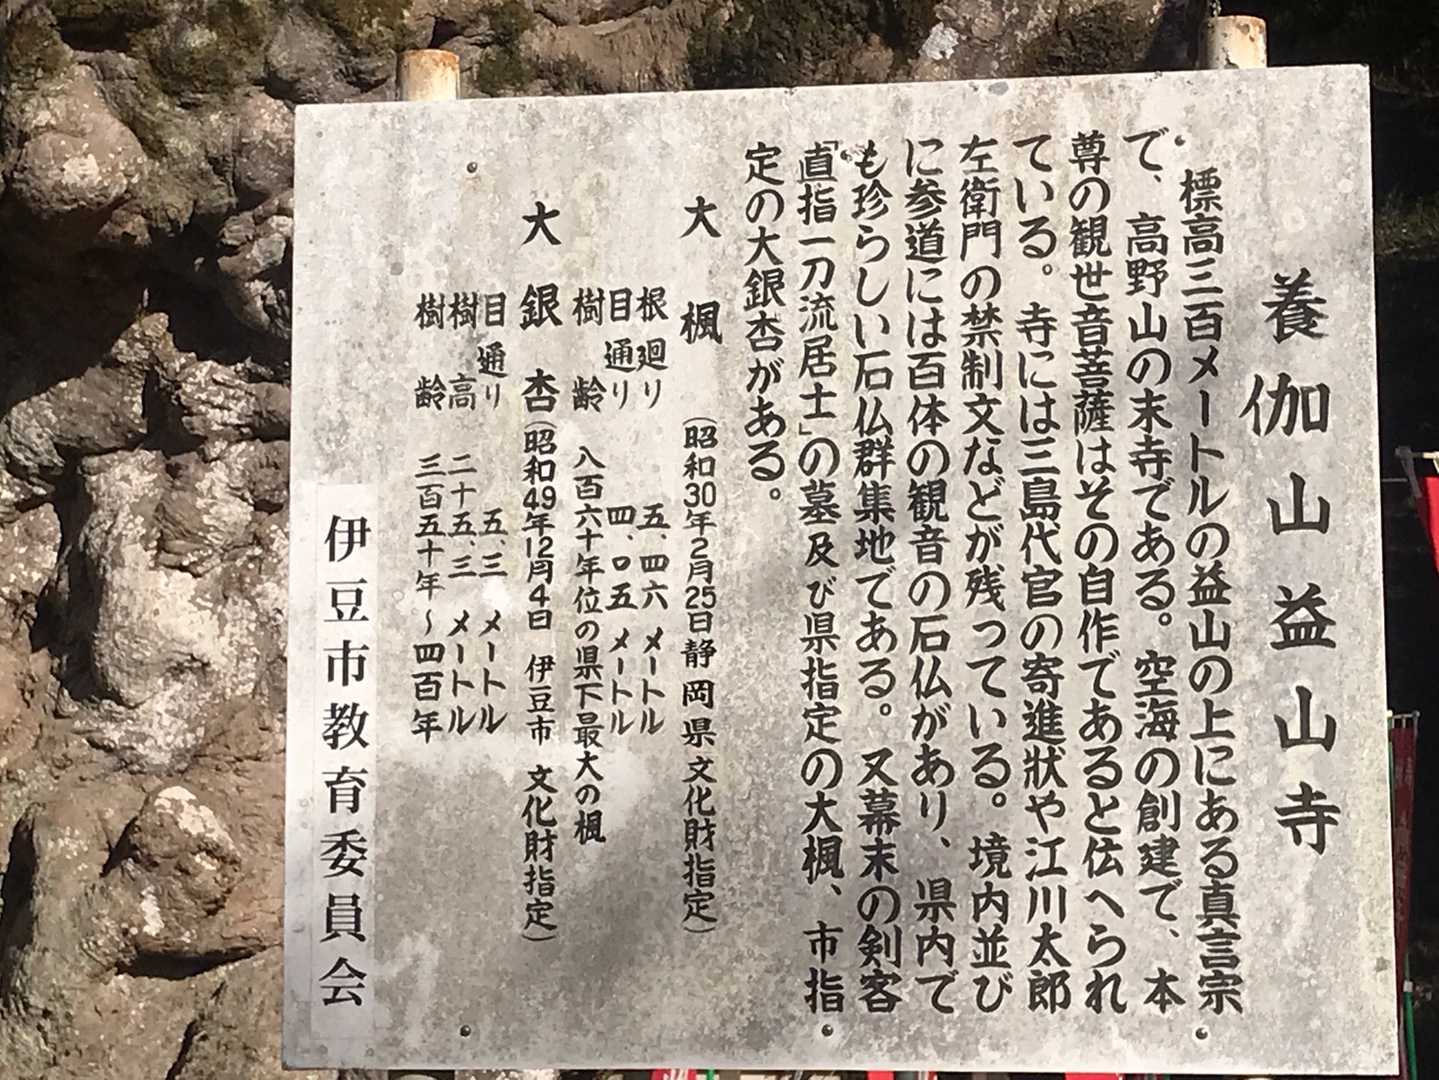 養伽山益山寺
標高三百メートルの益山の上にある真言宗
で、高野山の末寺である。空海の創建で、本
尊の観世音菩薩はその自作であると伝へられ
ている。寺には三島代官の寄進状や江川太郎
左衛門の禁制文などが残っている。境内並び
に参道には百体の観音の石仏があり、県内で
も珍らしい石仏群集地である。又幕末の剣客
「直指一刀流居士」の墓及び県指定の大楓、市指
定の大銀杏がある。
大楓(昭和30年2月25日静岡県文化財指定)
根廻り 五.四六メートル
目通り 四.〇五メートル
樹齢 八百六十年位の県下最大の楓
大銀杏(昭和49年12月4日 伊豆市 文化財指定)
目通り 五.三メートル
樹高 二十五.三メートル
樹齢 三百五十年～四百年
伊豆市教育委員会